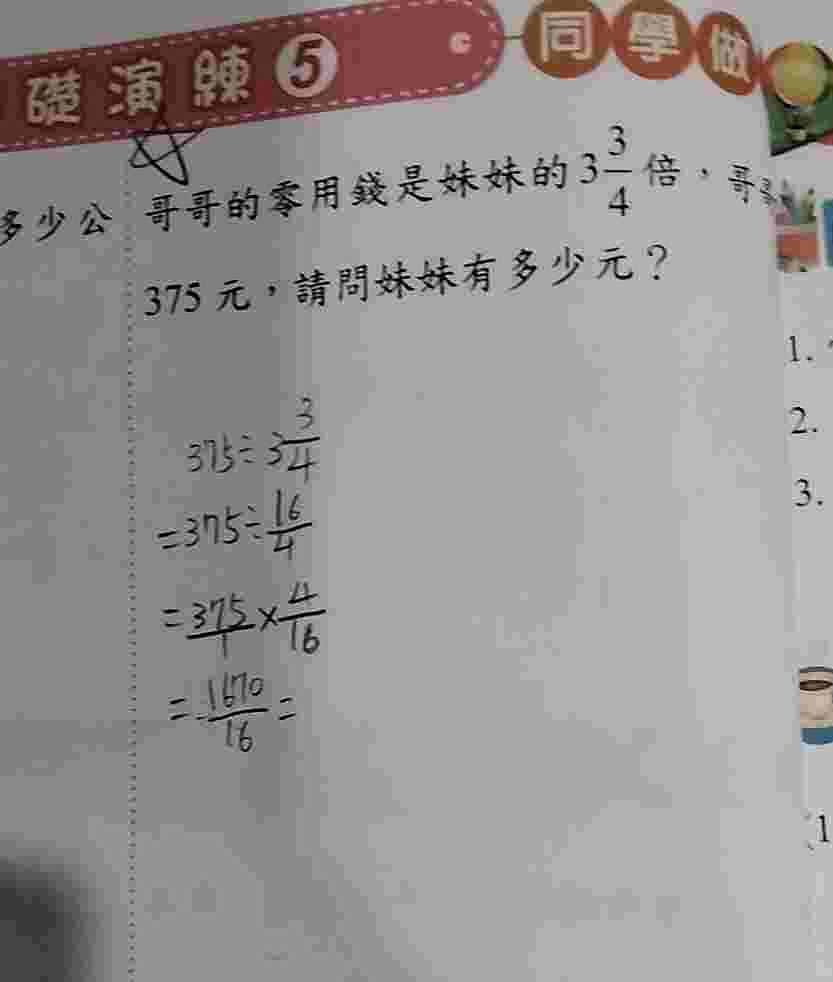 礎演練5
同學做
多少公
哥哥的零用錢是妹妹的3 3/4倍，哥
375元，請問妹妹有多少元？
375÷3 3/4
=375÷16/4
=375/1×4/16
=1670/16=
1.
2.
3.
(1